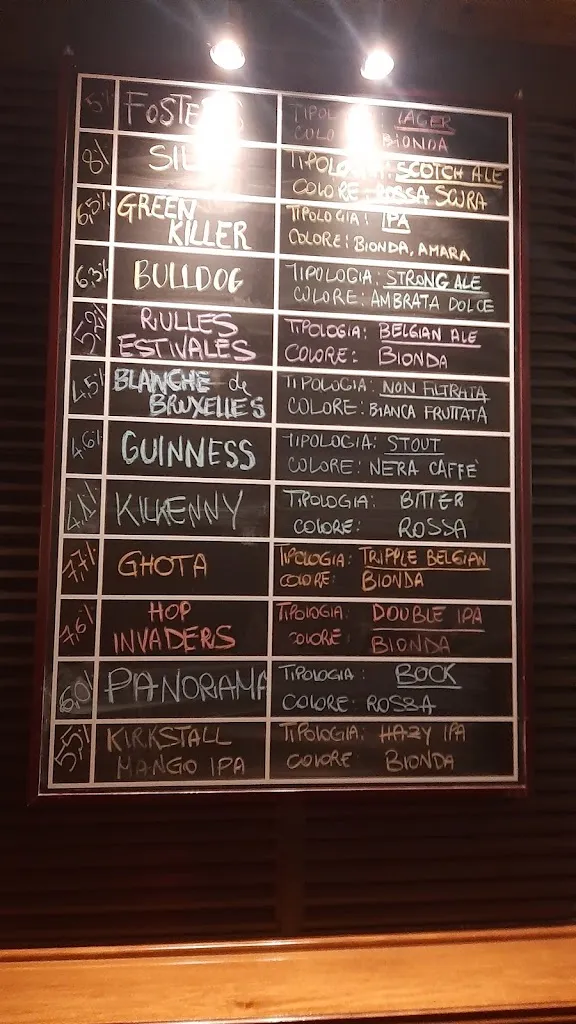 5%
FOSTER'S
TIPOL : LAGER
COLO BIONDA
8%
TIPOLOGIA: SCOTCH ALE
COLORE: ROSSA SCURA
6,5%
GREEN
KILLER
TIPOLOGIA: IPA
COLORE: BIONDA, AMARA
6,3%
BULLDOG
TIPOLOGIA: STRONG ALE
COLORE: AMBRATA DOLCE
5,2%
RULLES
ESTIVALES
TIPOLOGIA: BELGIAN ALE
COLORE: BIONDA
4,5%
BLANCHE de
BRUXELLE'S
TIPOLOGIA: NON FILTRATA
COLORE: BIANCA FRUTTATA
4,6%
GUINNESS
TIPOLOGIA: STOUT
COLORE: NERA CAFFE'
4,1%
KILKENNY
TIPOLOGIA: BITTER
COLORE: ROSSA
7,7%
GHOTA
TIPOLOGIA: TRIPPLE BELGIAN
COLORE: BIONDA
7,6%
HOP
INVADERS
TIPOLOGIA: DOUBLE IPA
COLORE: BIONDA
6,0%
PANORAMA
TIPOLOGIA: BOCK
COLORE: ROSSA
5,5%
KIRKSTALL
MANGO IPA
TIPOLOGIA: HAZY IPA
COLORE BIONDA